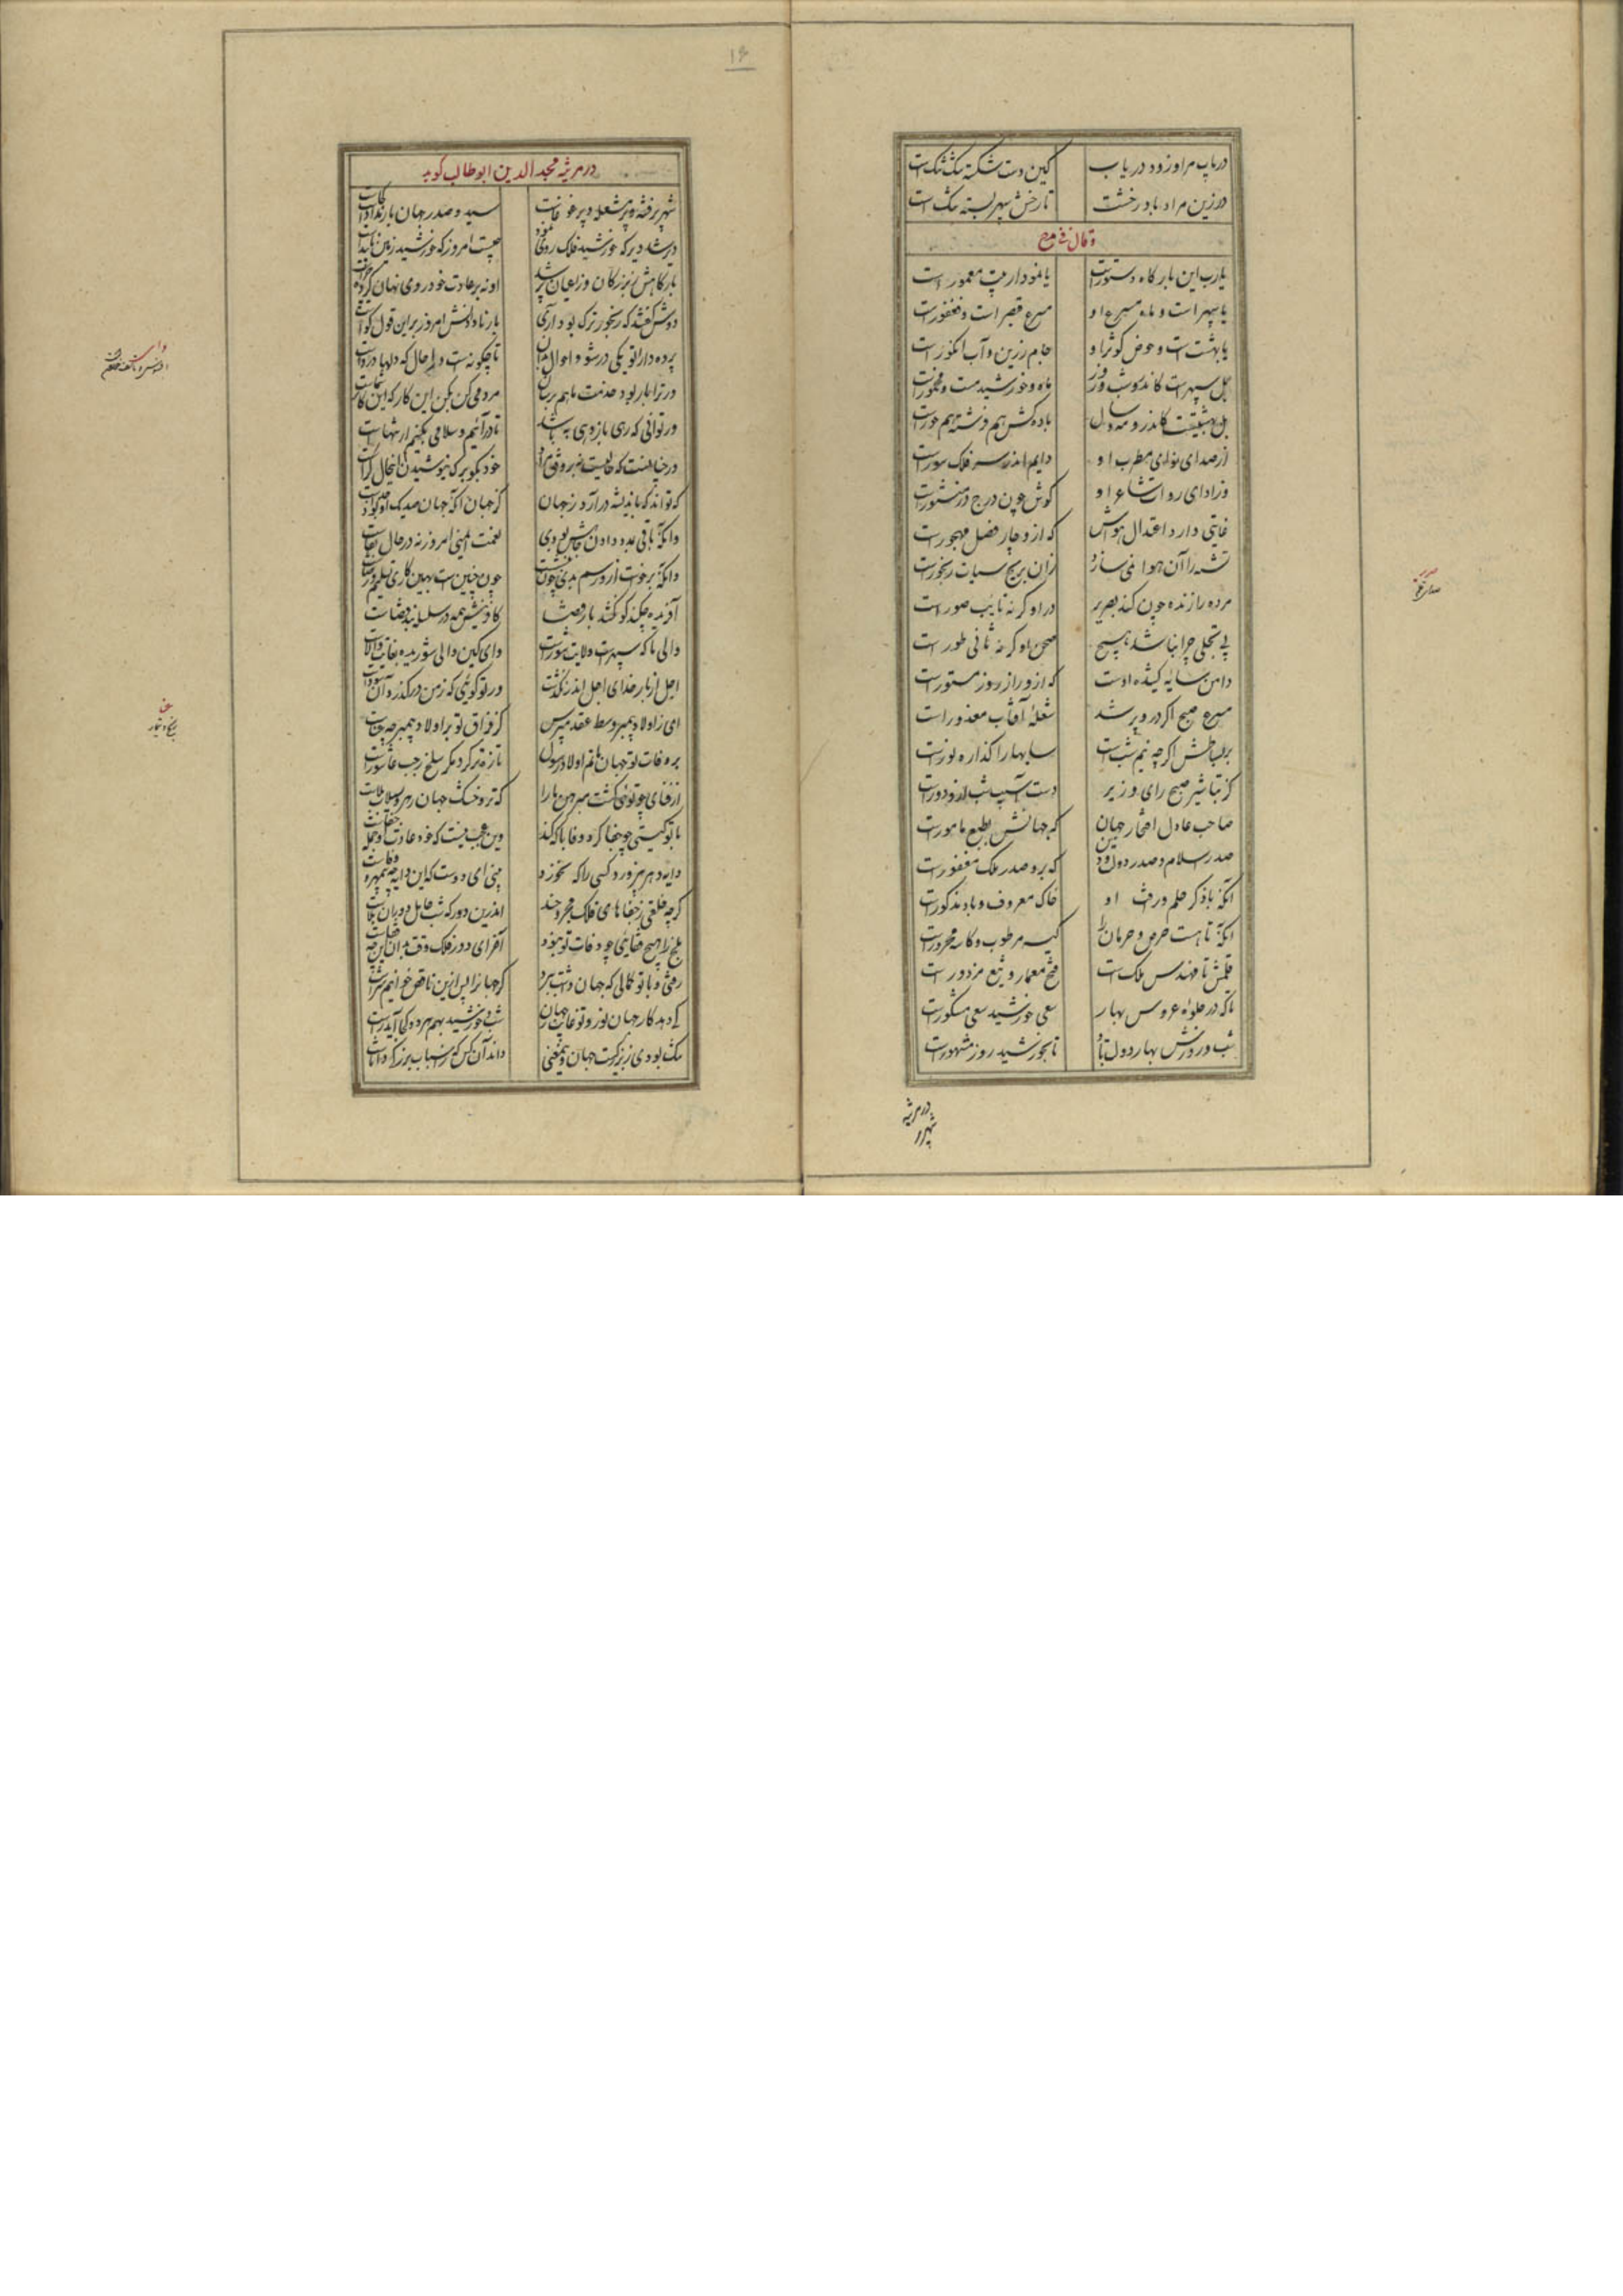 دریاب مرا و زود دریاب کین دست شکسته تنگ تنگ است
در زین مراد باد رخشت تا رخش سپهر بسته تنگ است
و قال فی مدح
یارب این بارگاه دستورست یا نمودار بیت معمورست
یا سپهر است و ماه مسرع او مسرع قیصر است و فغفورست
یا بهشت است و حوض کوثر او جام زرین و آب انگورست
بل سپهرست کاندرو شب و روز ماه و خورشید مست و مخمورست
بل بهشتیست کاندرو مه و سال باده کش هم فرشته هم حورست
از صدای نوای مطرب او دایم اندر سر فلک سورست
وز ادای روات شاعر او گوش چون درج در منثورست
غایتی دارد اعتدال هوش که ازو چار فصل مهجورست
تشنه را آن هوا نمی سازد زان بریح سیات رنجورست
مرده را زنده چون کند بصریر در او گر نه نایب صورست
بی تجلی چرا نباشد هیچ صحن او گر نه ثانی طورست
دامن سایه کشیده اوست که ازو راز روز مستورست
مسرع صبح اگر درو نرسد شعله آفتاب معذورست
بر بساطش اگر چه نیم شبست سایها را گذاره نورست
کز تباشیر صبح رای وزیر دست آسیب شب ازو دورست
صاحب عادل افتخار جهان که جهانش بطبع مامورست
صدر اسلام و صدر دولت و دین که برو صدر ملک مقصورست
آنکه با ذکر حلم و رافت او خاک معروف و باد مذکورست
آنکه تا هست حرص و حرمان را کیسه مرطوب و کاسه محرورست
قلمش تا مهندس ملکست فتح معمار و تیغ مزدورست
تا که در جلوه عروس بهار سعی خورشید سعی مشکورست
شب و روزش بهار دولت باد تا بخورشید روز مشهورست
در مرثیه
شهر
در مرثیه مجد الدین ابوطالب گوید
شهر پر فتنه و پر مشغله و پر غوغاست سید و صدر جهان بار ندادست کجاست
دیر شد دیر که خورشید فلک روی نمود چیست امروز که خورشید زمین ناپیداست
بارگاهش ز بزرگان و ز اعیان پر شد او نه بر عادت خود روی نهان کرده چراست
دوش گفتند که رنجور ترک بود آری بار نادادنش امروز بر این قول گواست
پرده دارا تو یکی در شو و احوال بدان تا چگونه است و به حال که دلها درواست
ور ترا بار بود خدمت ما هم برسان مردمی کن بکن این کار که این کار شماست
ور توانی که رهی بازدهی به باشد تا درآئیم و سلامی بکنیم ار تنهاست
ور چنانست که حالیست نه بر وفق مراد خود بگو برگ نیوشیدن این حال کراست
که تواند که باندیشه درآرد ز جهان کز جهان آنکه جهان صد یک ازو بود جداست
وانکه باقی بمدد دادن جاهش بودی نعمت ایمنی امروز نه در حال بقاست
وانکه برخاست ازو رسم بدی چون بنشست چون چنین است بهین کاری تسلیم و رضاست
آفریده چکند گر نکشد بار قضا کافرینش همه در سلسله بند قضاست
والی ما که سپهرست ولایت سوزست وای کین والی سوزنده بغایت والاست
اجل از بار خدای اجل اندر نگذشت ور تو گوئی که ز من درگذرد آن سوداست
ای ز اولاد پیمبر وسط عقد مپرس کز فراق تو بر اولاد پیمبر چه عناست
به وفات تو جهان ماتم اولاد رسول تازه تر کرد مگر سلخ رجب عاشوراست
از فنای چو توئی گشت مبرهن ما را که تر و خشک جهان رهرو سیلاب فناست
با تو گیتی چو جفا کرد وفا با که کند وین عجب نیست که خود عادت او جمله جفاست
دایه دهر نپرورد کسی را که نخورد بینی ای دوست که این دایه چه بی مهر و وفاست
گرچه خلقی ز جفاهای فلک مجروحند اندرین دور که شب حامل دوران بلاست
هیچ کس را هیچ جفائی چو وفات تو نبود آخر ای دور فلک وقت بدان این چه جفاست
رفتی و با تو کمالی که جهان داشت ببرد گر جهان را پس ازین ناقص خوانیم سزاست
کی دهد کار جهان نور و تو غایب ز جهان شب و خورشید بهم هر دو کجا آید راست
تنگ بودی ز بزرگیت جهان وین معنی داند آن کس که بر اسباب بزرگی داناست